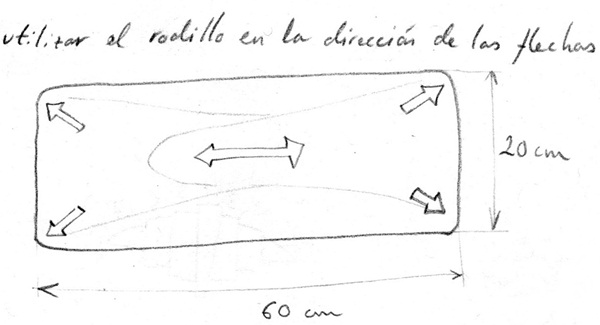 utilizar el rodillo en la dirección de las flechas
20 cm
60 cm